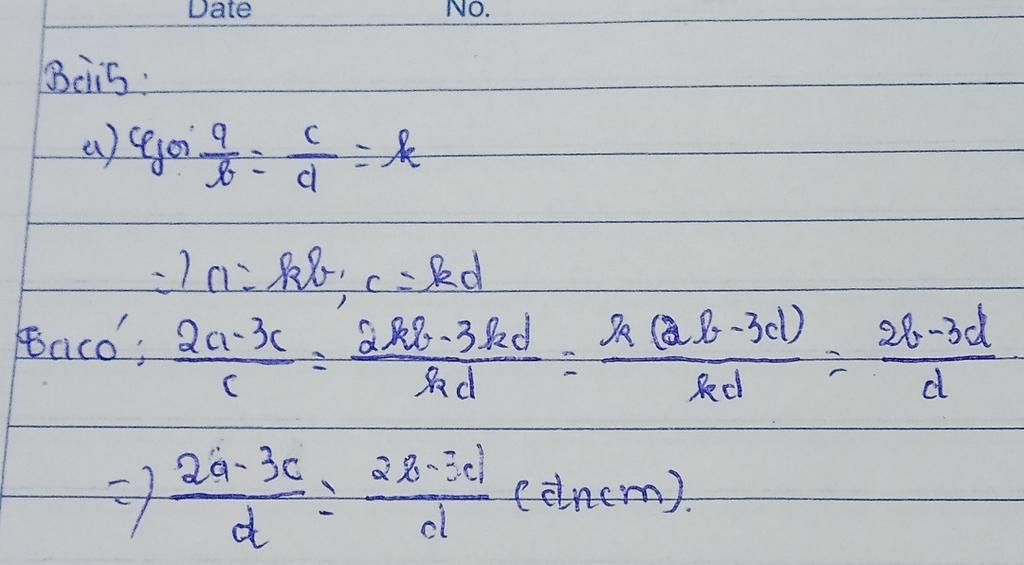 Date No.
Bài 5:
a) Gọi a/b = c/d = k
=) a = kb; c = kd
Ta có: (2a-3c)/c = (2kb-3kd)/kd = k(2b-3d)/kd = (2b-3d)/d
=) (2a-3c)/d = (2b-3d)/d (đpcm).